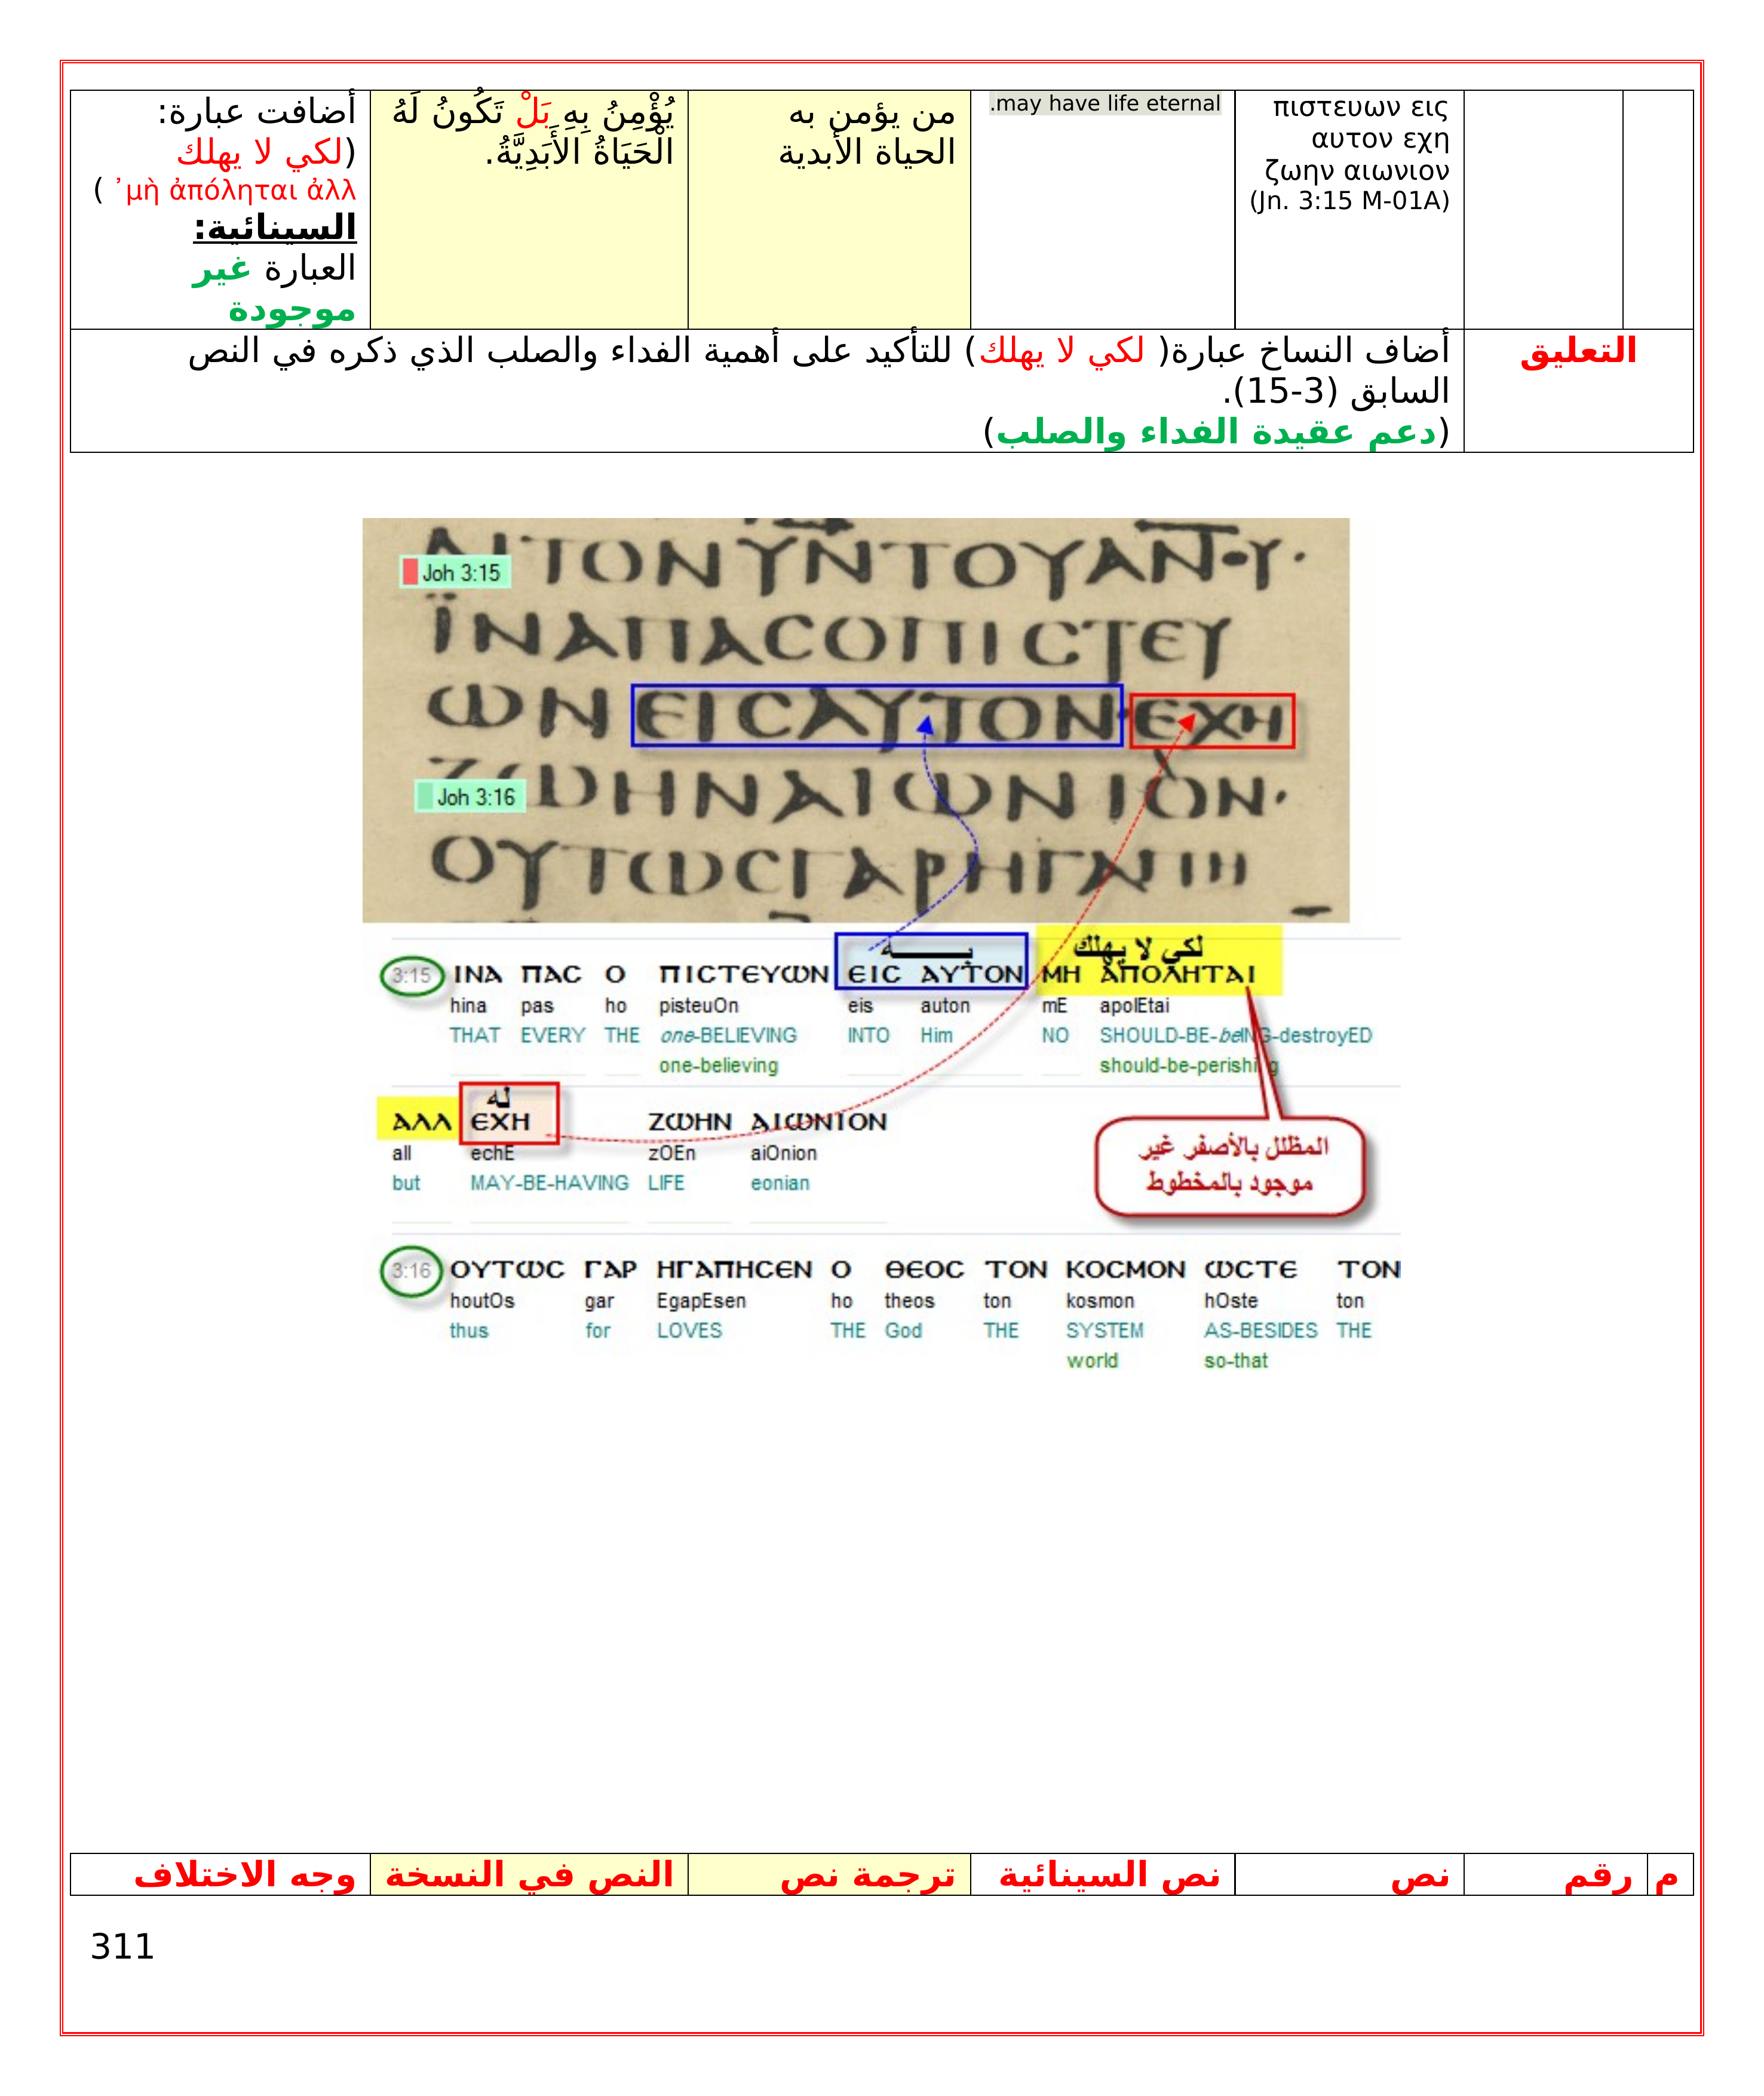 πιστευων εις
αυτον εχη
ζωην αιωνιον
(Jn. 3:15 M-01A)
may have life eternal.
من يؤمن به
الحياة الأبدية
يُؤْمِنُ بِهِ بَلْ تَكُونُ لَهُ
الْحَيَاةُ الأَبَدِيَّةُ.
أضافت عبارة:
(لكي لا يهلك
μὴ ἀπόληται ἀλλ᾽ )
السينائية:
العبارة غير
موجودة
التعليق
أضاف النساخ عبارة( لكي لا يهلك) للتأكيد على أهمية الفداء والصلب الذي ذكره في النص
السابق (3-15).
(دعم عقيدة الفداء والصلب)
Joh 3:15 ΤΟΝΥΝΤΟΥΑΝΟΥ·
ΪΝΑΠΑCΟΠΙCΤΕΥ
ΩΝ ΕΙCΑΥΤΟΝ ΕΧΗ
Joh 3:16 ΖΩΗΝΑΙΩΝΙΟΝ·
ΟΥΤΩCΓΑΡΗΓΑΠΗ
بـــه لكي لا يهلك
3:15 ΙΝΑ ΠΑC Ο ΠΙCΤΕΥΩΝ ΕΙC ΑΥΤΟΝ ΜΗ ΑΠΟΛΗΤΑΙ
hina pas ho pisteuOn eis auton mE apolEtai
THAT EVERY THE one-BELIEVING INTO Him NO SHOULD-BE-beING-destroyED
one-believing should-be-perishing
له
ΑΛΛ ΕΧΗ ΖΩΗΝ ΑΙΩΝΙΟΝ
all echE zOEn aiOnion
but MAY-BE-HAVING LIFE eonian
المظلل بالأصفر غير
موجود بالمخطوط
3:16 ΟΥΤΩC ΓΑΡ ΗΓΑΠΗCΕΝ Ο ΘΕΟC ΤΟΝ ΚΟCΜΟΝ ΩCΤΕ ΤΟΝ
houtOs gar EgapEsen ho theos ton kosmon hOste ton
thus for LOVES THE God THE SYSTEM AS-BESIDES THE
world so-that
م رقم نص نص السينائية ترجمة نص النص في النسخة وجه الاختلاف
311